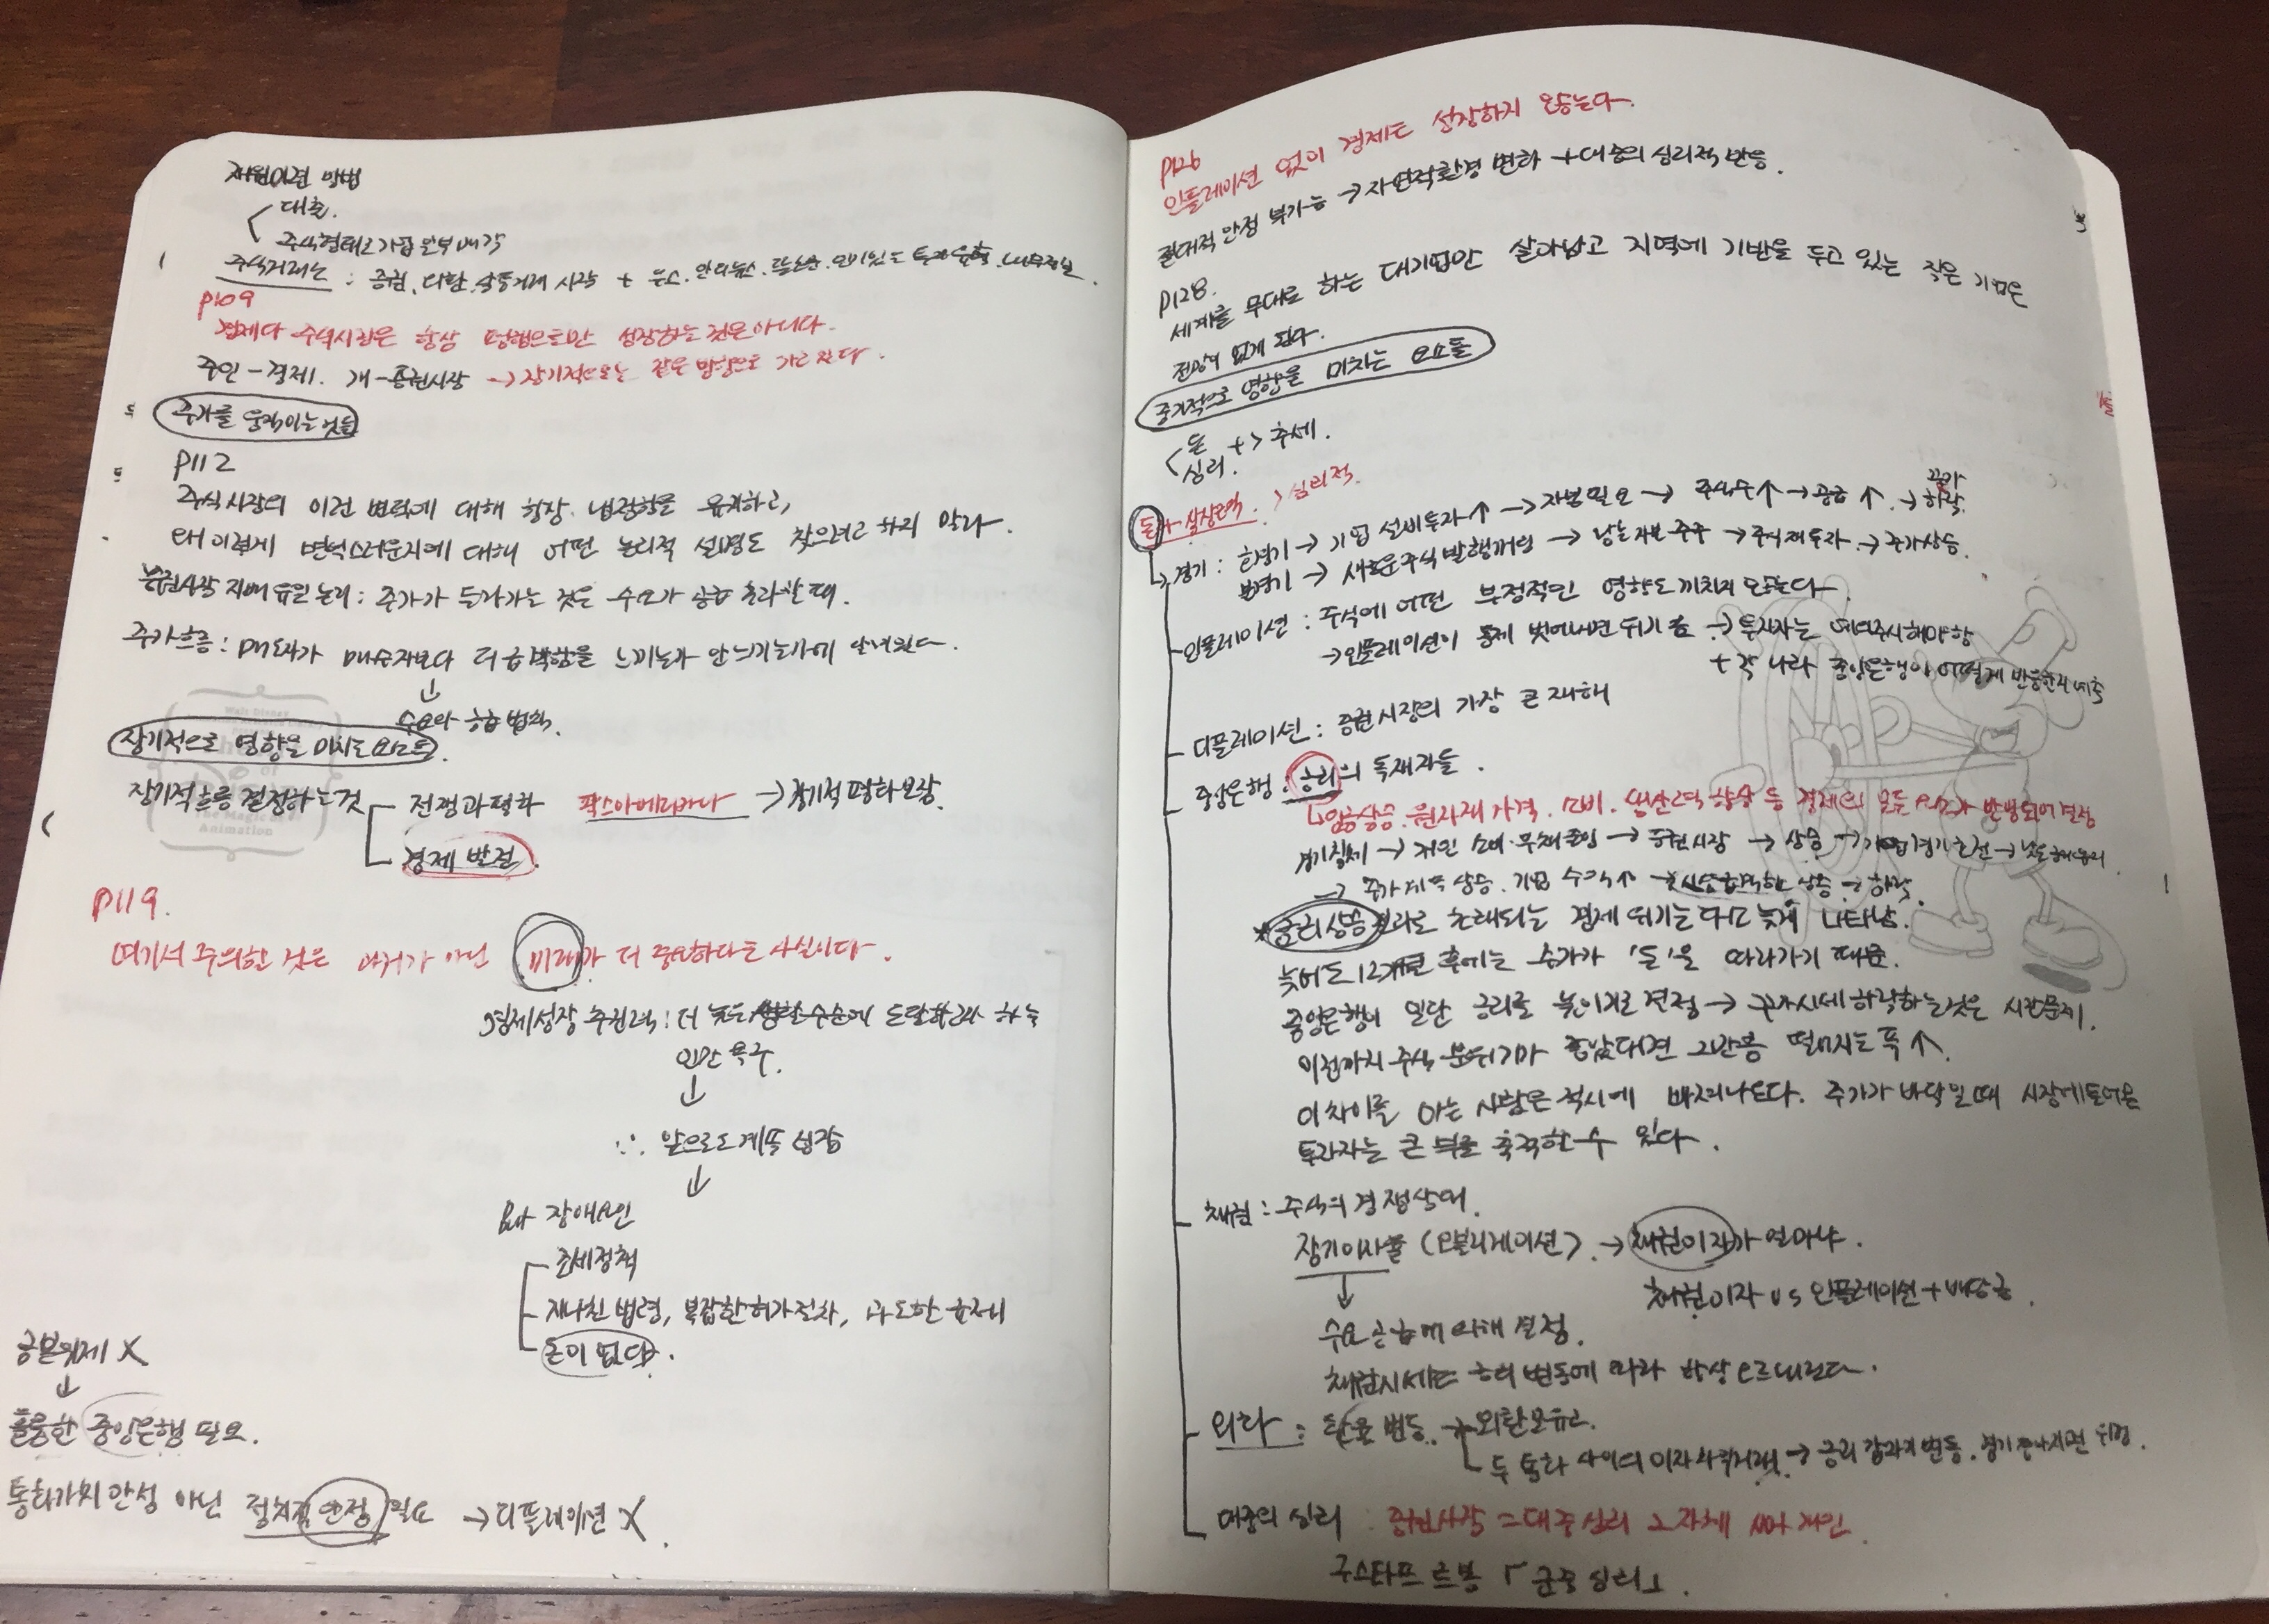 자원이전 방법
대출.
주식형태로 기업 일부 매각
주식거래는 : 증권, 다탄, 상품거래 시작 + 뉴스
P109
경제와 주식시장은 항상 평행으로만 성장하는 것은 아니다.
주인 - 경제. 개 - 증권시장 → 장기적으로는 같은 방향으로 가고 있다.
주가를 움직이는 것들
P112
주식시장의 이런 변덕에 대해 항상 냉정함을 유지하고,
왜 이렇게 변덕스러운지에 대해 어떤 논리적 설명도 찾으려고 하지 말라.
증권시장 지배 유일 논리 : 주가가 올라가는 것은 수요가 공급 초과할 때.
주가흐름 : 매도자가 매수자보다 더 급박함을 느끼는가 안 느끼는가에 달려있다.
↓
수요와 공급 법칙.
장기적으로 영향을 미치는 요소들
장기적 흐름 결정하는 것
전쟁과 평화 팍스아메리카나 → 장기적 평화보장.
경제 발전.
P119.
여기서 주의할 것은 과거가 아닌 미래가 더 중요하다는 사실이다.
경제성장 추진력 : 더 높은 생활수준에 도달하고자 하는
인간 욕구.
↓
∴ 앞으로도 계속 성장
↓
But 장애요인
조세정책
지나친 법령, 복잡한 허가절차, 과도한 금리
돈이 없다.
금본위제 X
↓
훌륭한 중앙은행 필요.
통화가치 안정 아닌 정치적 안정 필요 → 디플레이션 X.
P126
인플레이션 없이 경제는 성장하지 않는다.
절대적 안정 불가능 → 자연적 환경 변화 + 대중의 심리적 반응.
P128.
세계를 무대로 하는 대기업만 살아남고 지역에 기반을 두고 있는 작은 기업은
전망이 없게 된다.
중기적으로 영향을 미치는 요소들
돈
심리. +> 추세.
돈 > 심리적.
경기 : 호경기 → 기업 설비투자↑ → 자본 필요 → 주식수↑ → 공급↑. → 주가 하락.
불경기 → 새로운 주식 발행 꺼림 → 남는 자본 주주 → 주식 재투자 → 주가상승.
인플레이션 : 주식에 어떤 부정적인 영향도 끼치지 않는다.
→ 인플레이션이 통제 벗어나면 위기 → 투자자는 예의주시해야 함
+ 각 나라 중앙은행이 어떻게 반응할지 예측
디플레이션 : 증권시장의 가장 큰 재해
중앙은행 : 금리의 독재자들.
↳ 임금상승, 원자재 가격, 소비, 생산력 향상 등 경제의 모든 요소가 반영되어 결정
경기침체 → 개인 소비 → 증권시장 → 상승 → 기업경기 호전
→ 주가 계속 상승, 기업 수익↑ → 상승 → 하락.
* 금리상승 결과로 초래되는 경제 위기는 다소 늦게 나타남.
늦어도 12개월 후에는 주가가 '돈'을 따라가기 때문.
중앙은행이 일단 금리를 높이기로 결정 → 주가시세 하락하는 것은 시간문제.
이전까지 주식 분위기가 좋았다면 그만큼 떨어지는 폭↑.
이 차이를 아는 사람은 적시에 빠져나온다. 주가가 바닥일 때 시장에 들어온
투자자는 큰 부를 축적할 수 있다.
채권 : 주식의 경쟁상대.
장기이자율 (오블리게이션) → 채권이자가 얼마냐.
↓
채권이자 vs 인플레이션 + 배당금.
수요 공급에 의해 결정.
채권시세는 금리 변동에 따라 항상 오르내린다.
외화 : 환율 변동. → 외환보유고.
두 통화 사이의 이자 차익거래. → 금리 격차가 변동, 경기 위험.
대중의 심리 : 증권시장 = 대중심리 그 자체
구스타프 르봉 「군중심리」.